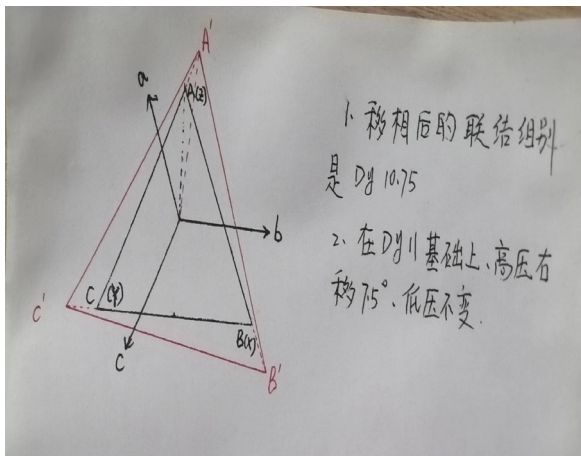 A'
a
A(Z)
b
C'
C
(Y)
B(X)
c
B'
1、移相后的联结组别
是 Dy 10.75
2、在Dy11基础上、高压右
移7.5°、低压不变.